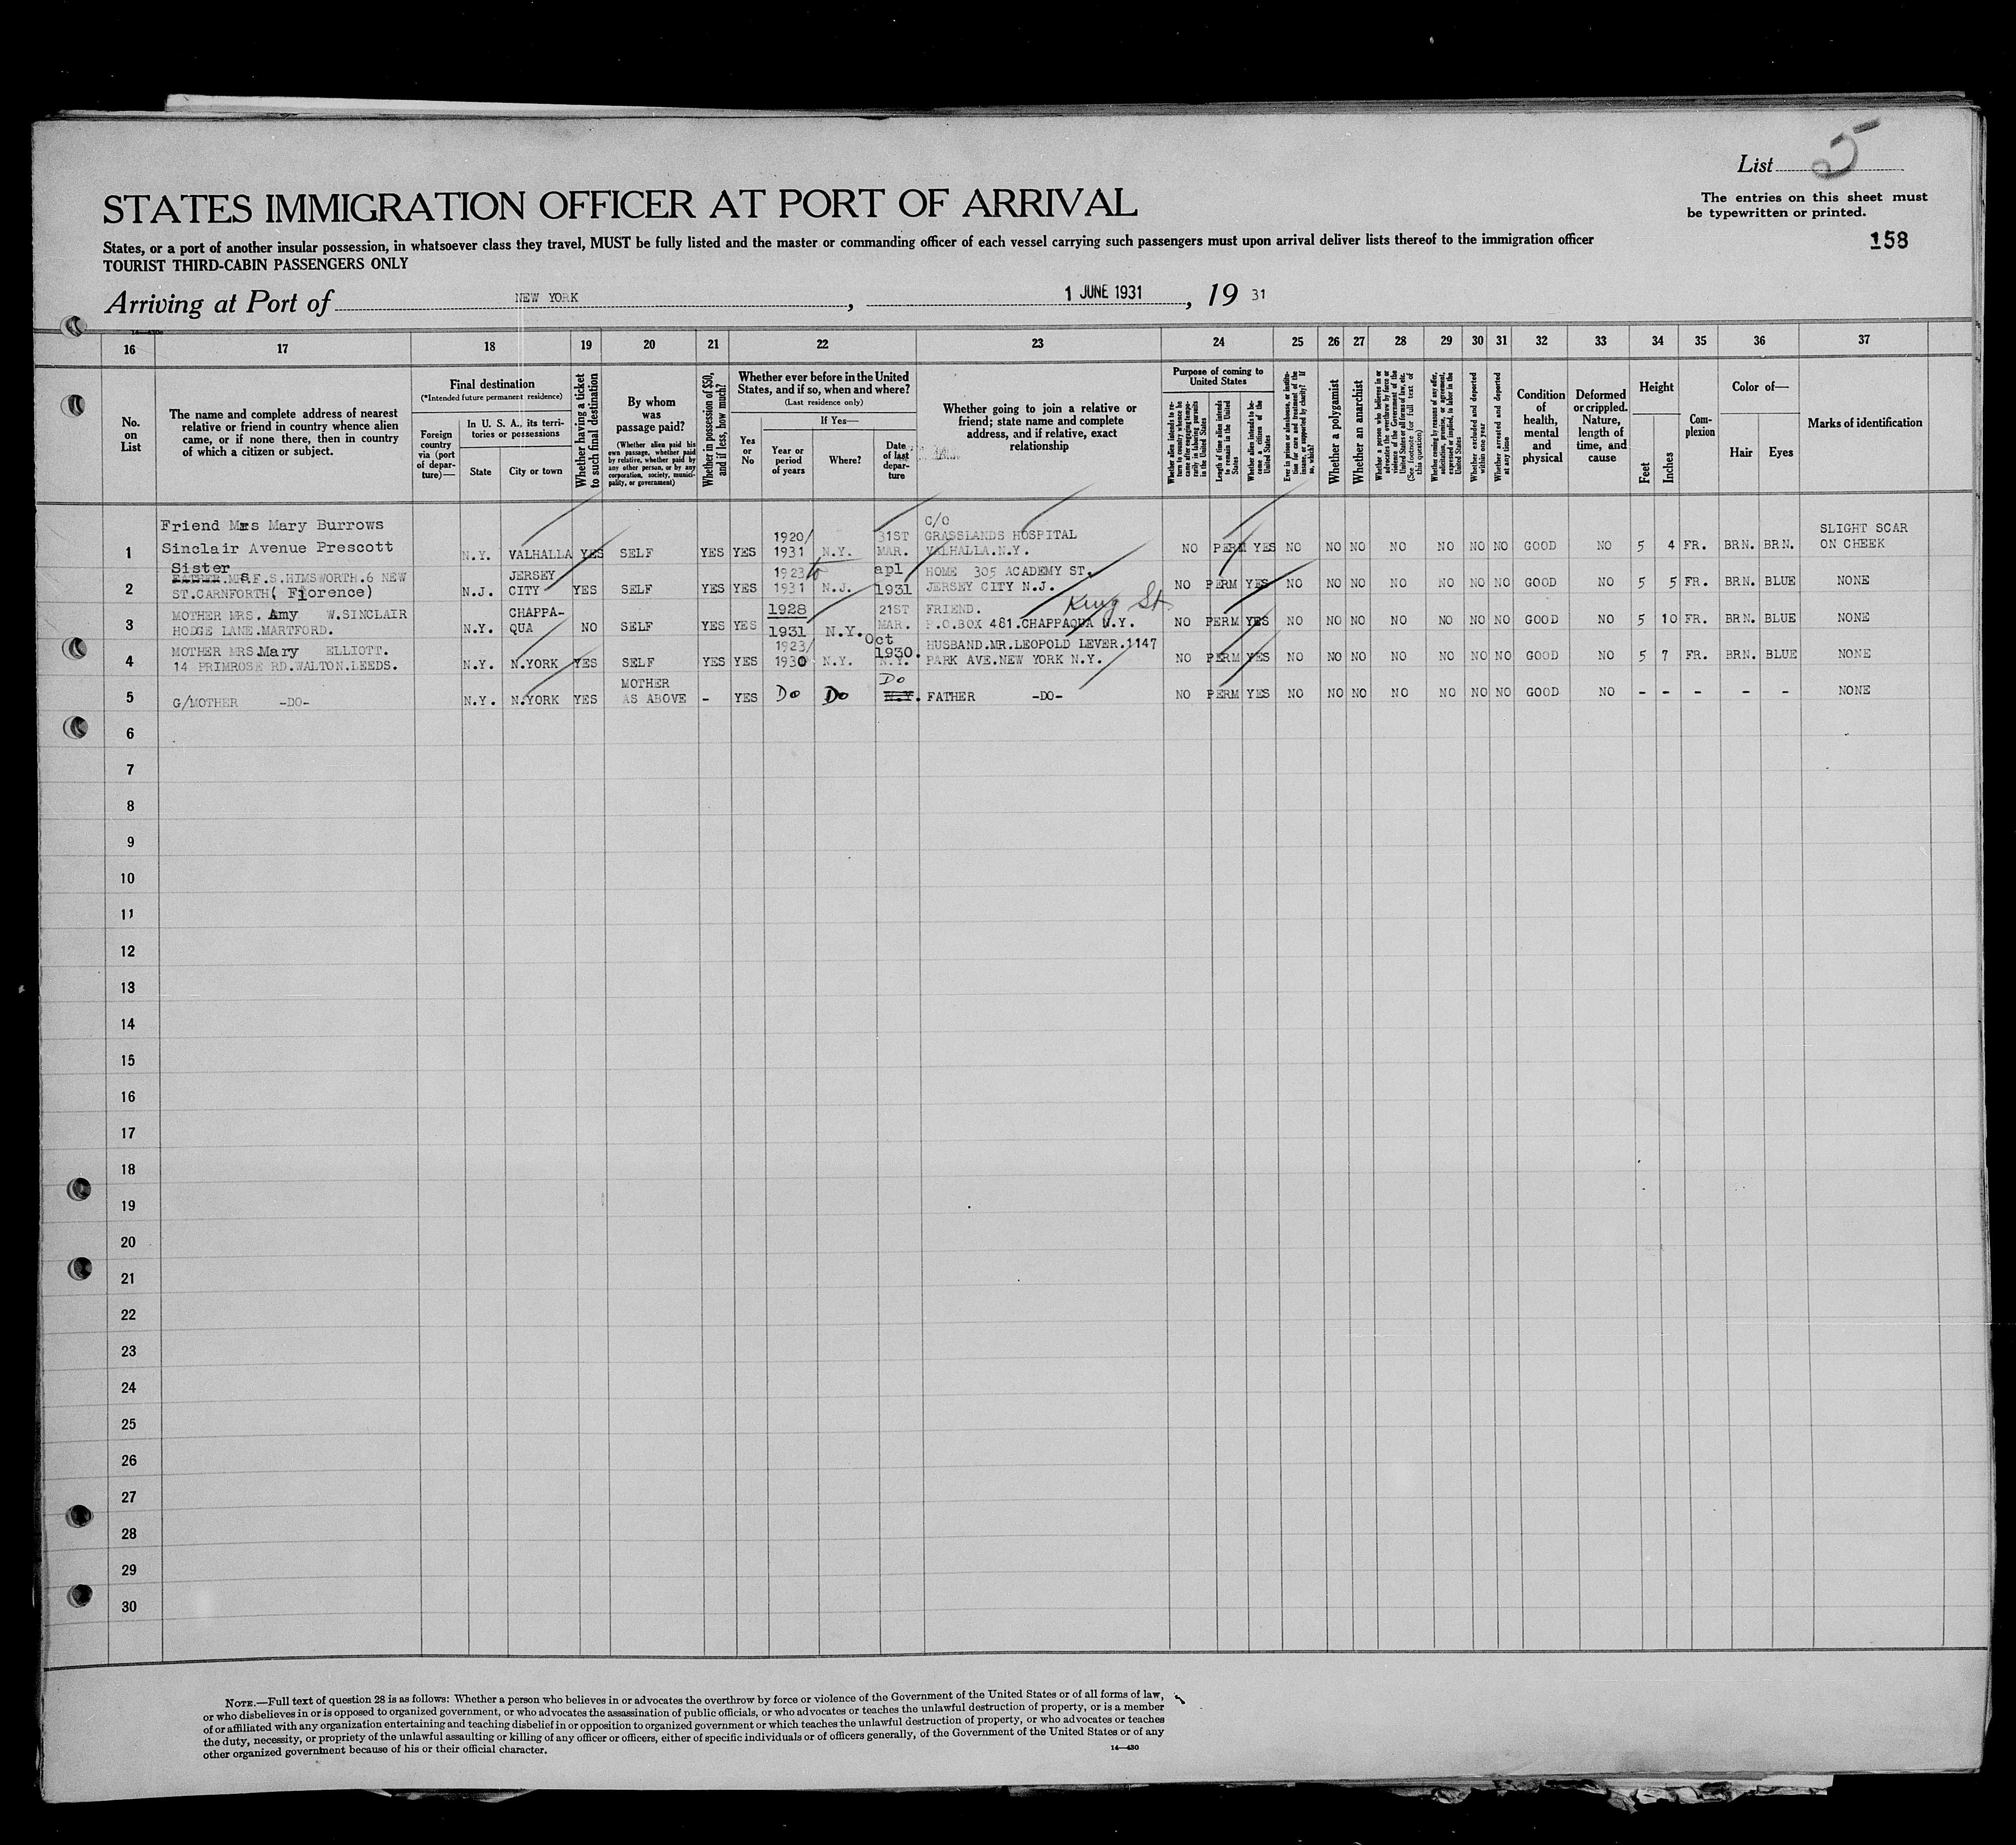 List 5
STATES IMMIGRATION OFFICER AT PORT OF ARRIVAL
The entries on this sheet must
be typewritten or printed.
States, or a port of another insular possession, in whatsoever class they travel, MUST be fully listed and the master or commanding officer of each vessel carrying such passengers must upon arrival deliver lists thereof to the immigration officer
158
TOURIST THIRD-CABIN PASSENGERS ONLY
Arriving at Port of NEW YORK, 1 JUNE 1931, 19 31
16 17 18 19 20 21 22 23 24 25 26 27 28 29 30 31 32 33 34 35 36 37
No. on List
The name and complete address of nearest
relative or friend in country whence alien
came, or if none there, then in country
of which a citizen or subject.
Final destination
(*Intended future permanent residence)
Foreign country via (port of departure)—
In U. S. A., its territories or possessions
State
City or town
Whether having a ticket to such final destination
By whom was passage paid?
(Whether alien paid his own passage, whether paid by relative, whether paid by any other person, or by any corporation, society, municipality, or government)
Whether in possession of $50, and if less, how much?
Whether ever before in the United States, and if so, when and where?
(Last residence only)
Yes or No
If Yes—
Year or period of years
Where?
Date of last departure
Whether going to join a relative or
friend; state name and complete
address, and if relative, exact
relationship
Purpose of coming to United States
Whether alien intends to return to country whence he came after engaging temporarily in laboring pursuits in the United States
Length of time alien intends to remain in the United States
Whether alien intends to become a citizen of the United States
Ever in prison or almshouse, or institution for care and treatment of the insane, or supported by charity? If so, which?
Whether a polygamist
Whether an anarchist
Whether a person who believes in or advocates the overthrow by force or violence of the Government of the United States or all forms of law, etc. (See footnote for full text of this question)
Whether coming by reasons of any offer, solicitation, promise, or agreement, expressed or implied, to labor in the United States
Whether excluded and deported within one year
Whether arrested and deported at any time
Condition of health, mental and physical
Deformed or crippled. Nature, length of time, and cause
Height
Feet
Inches
Complexion
Color of—
Hair
Eyes
Marks of identification
1 Friend Mrs Mary Burrows Sinclair Avenue Prescott N.Y. VALHALLA YES SELF YES YES 1920/1931 N.Y. 31ST MAR. C/O GRASSLANDS HOSPITAL VALHALLA.N.Y. NO PERM YES NO NO NO NO NO NO NO GOOD NO 5 4 FR. BRN. BRN. SLIGHT SCAR ON CHEEK
2 Sister FATHER.MRS.F.S.HIMSWORTH.6 NEW ST.CARNFORTH( Florence) N.J. JERSEY CITY YES SELF YES YES 1923 to 1931 N.J. apl 1931 HOME 305 ACADEMY ST. JERSEY CITY N.J. NO PERM YES NO NO NO NO NO NO NO GOOD NO 5 5 FR. BRN. BLUE NONE
3 MOTHER MRS. Amy W.SINCLAIR HODGE LANE.MARTFORD. N.Y. CHAPPA-QUA NO SELF YES YES 1928 1931 N.Y. 21ST MAR. FRIEND. King St P.O.BOX 481.CHAPPAQUA N.Y. NO PERM YES NO NO NO NO NO NO NO GOOD NO 5 10 FR. BRN. BLUE NONE
4 MOTHER MRS.Mary ELLIOTT. 14 PRIMROSE RD.WALTON.LEEDS. N.Y. N.YORK YES SELF YES YES 1923/1930 N.Y. Oct 1930. N.Y. HUSBAND.MR.LEOPOLD LEVER.1147 PARK AVE.NEW YORK N.Y. NO PERM YES NO NO NO NO NO NO NO GOOD NO 5 7 FR. BRN. BLUE NONE
5 G/MOTHER -DO- N.Y. N.YORK YES MOTHER AS ABOVE - YES Do Do Do N.Y. FATHER -DO- NO PERM YES NO NO NO NO NO NO NO GOOD NO - - - - - NONE
6
7
8
9
10
11
12
13
14
15
16
17
18
19
20
21
22
23
24
25
26
27
28
29
30
NOTE.—Full text of question 28 is as follows: Whether a person who believes in or advocates the overthrow by force or violence of the Government of the United States or of all forms of law,
or who disbelieves in or is opposed to organized government, or who advocates the assassination of public officials, or who advocates or teaches the unlawful destruction of property, or is a member
of or affiliated with any organization entertaining and teaching disbelief in or opposition to organized government or which teaches the unlawful destruction of property, or who advocates or teaches
the duty, necessity, or propriety of the unlawful assaulting or killing of any officer or officers, either of specific individuals or of officers generally, of the Government of the United States or of any
other organized government because of his or their official character.
14—430